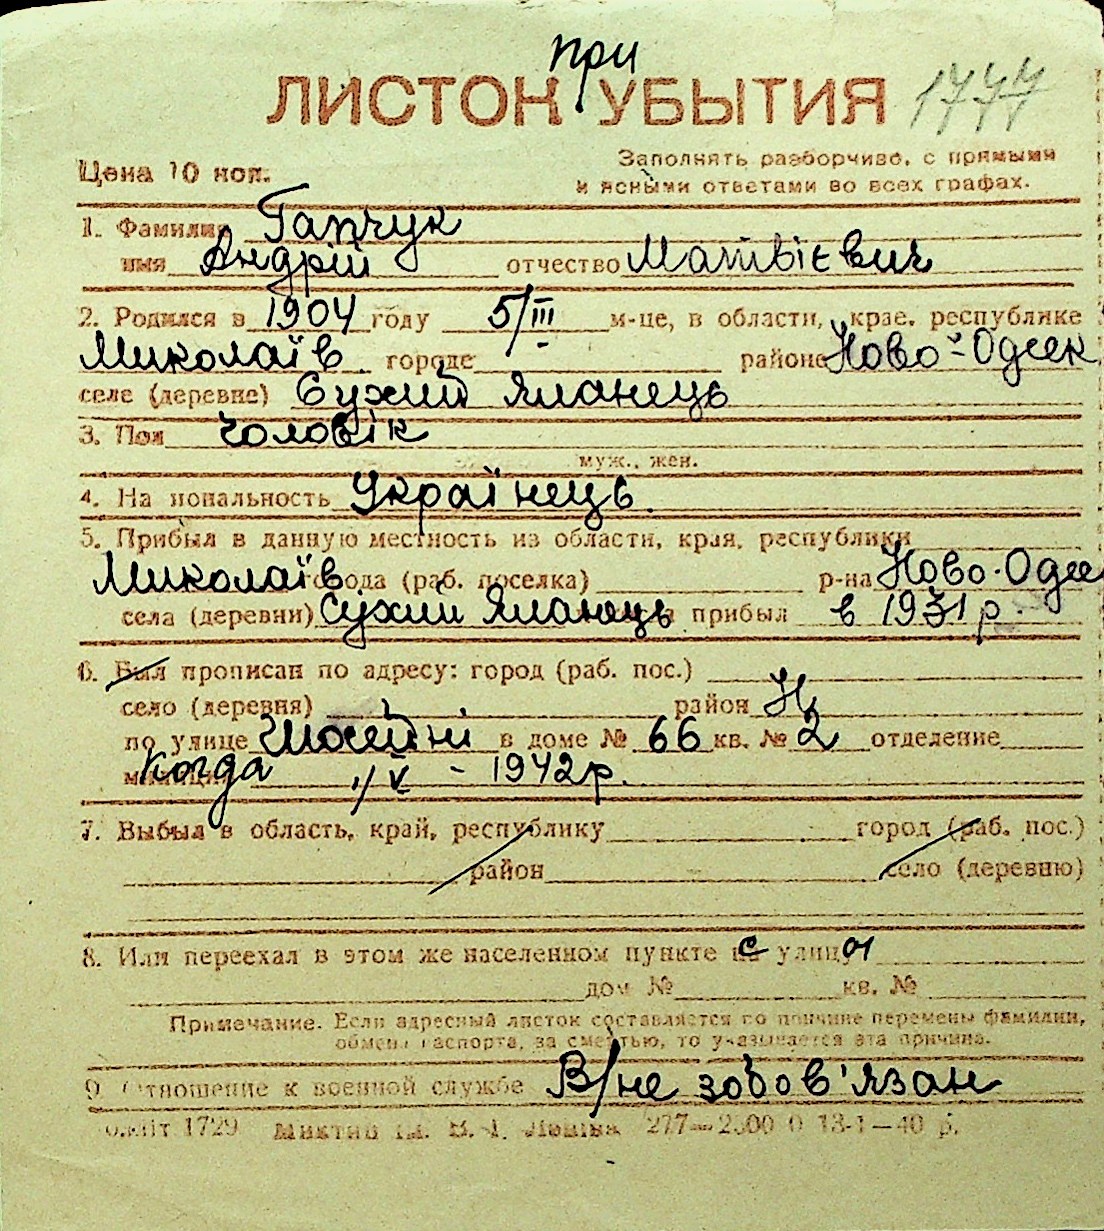 при
ЛИСТОК УБЫТИЯ 1777
Цена 10 коп.
Заполнять разборчиво, с прямыми
и ясными ответами во всех графах.
1. Фамилия Гапчук
имя Андрій отчество Матвієвич
2. Родился в 1904 году 5/III м-це, в области, крае, республике
Миколаїв городе районе Ново-Одеск
селе (деревне) Сухий Яланець
3. Пол чоловік
муж., жен.
4. Национальность Українець.
5. Прибыл в данную местность из области, края, республики
Миколаїв города (раб. поселка) р-на Ново-Одес
села (деревни) Сухий Яланець прибыл в 1931 р.
6. Был прописан по адресу: город (раб. пос.)
село (деревня) район
по улице Шосейні в доме № 66 кв. № 2 отделение
Когда 1/V - 1942 р.
7. Выбыл в область, край, республику город (раб. пос.)
район село (деревню)
8. Или переехал в этом же населенном пункте с улицы
дом № кв. №
Примечание. Если адресный листок составляется по причине перемены фамилии,
обмена паспорта, за смертью, то указывается эта причина.
9. Отношение к военной службе В/не зобов'язан
1729 277—2000 0 13-1—40 р.